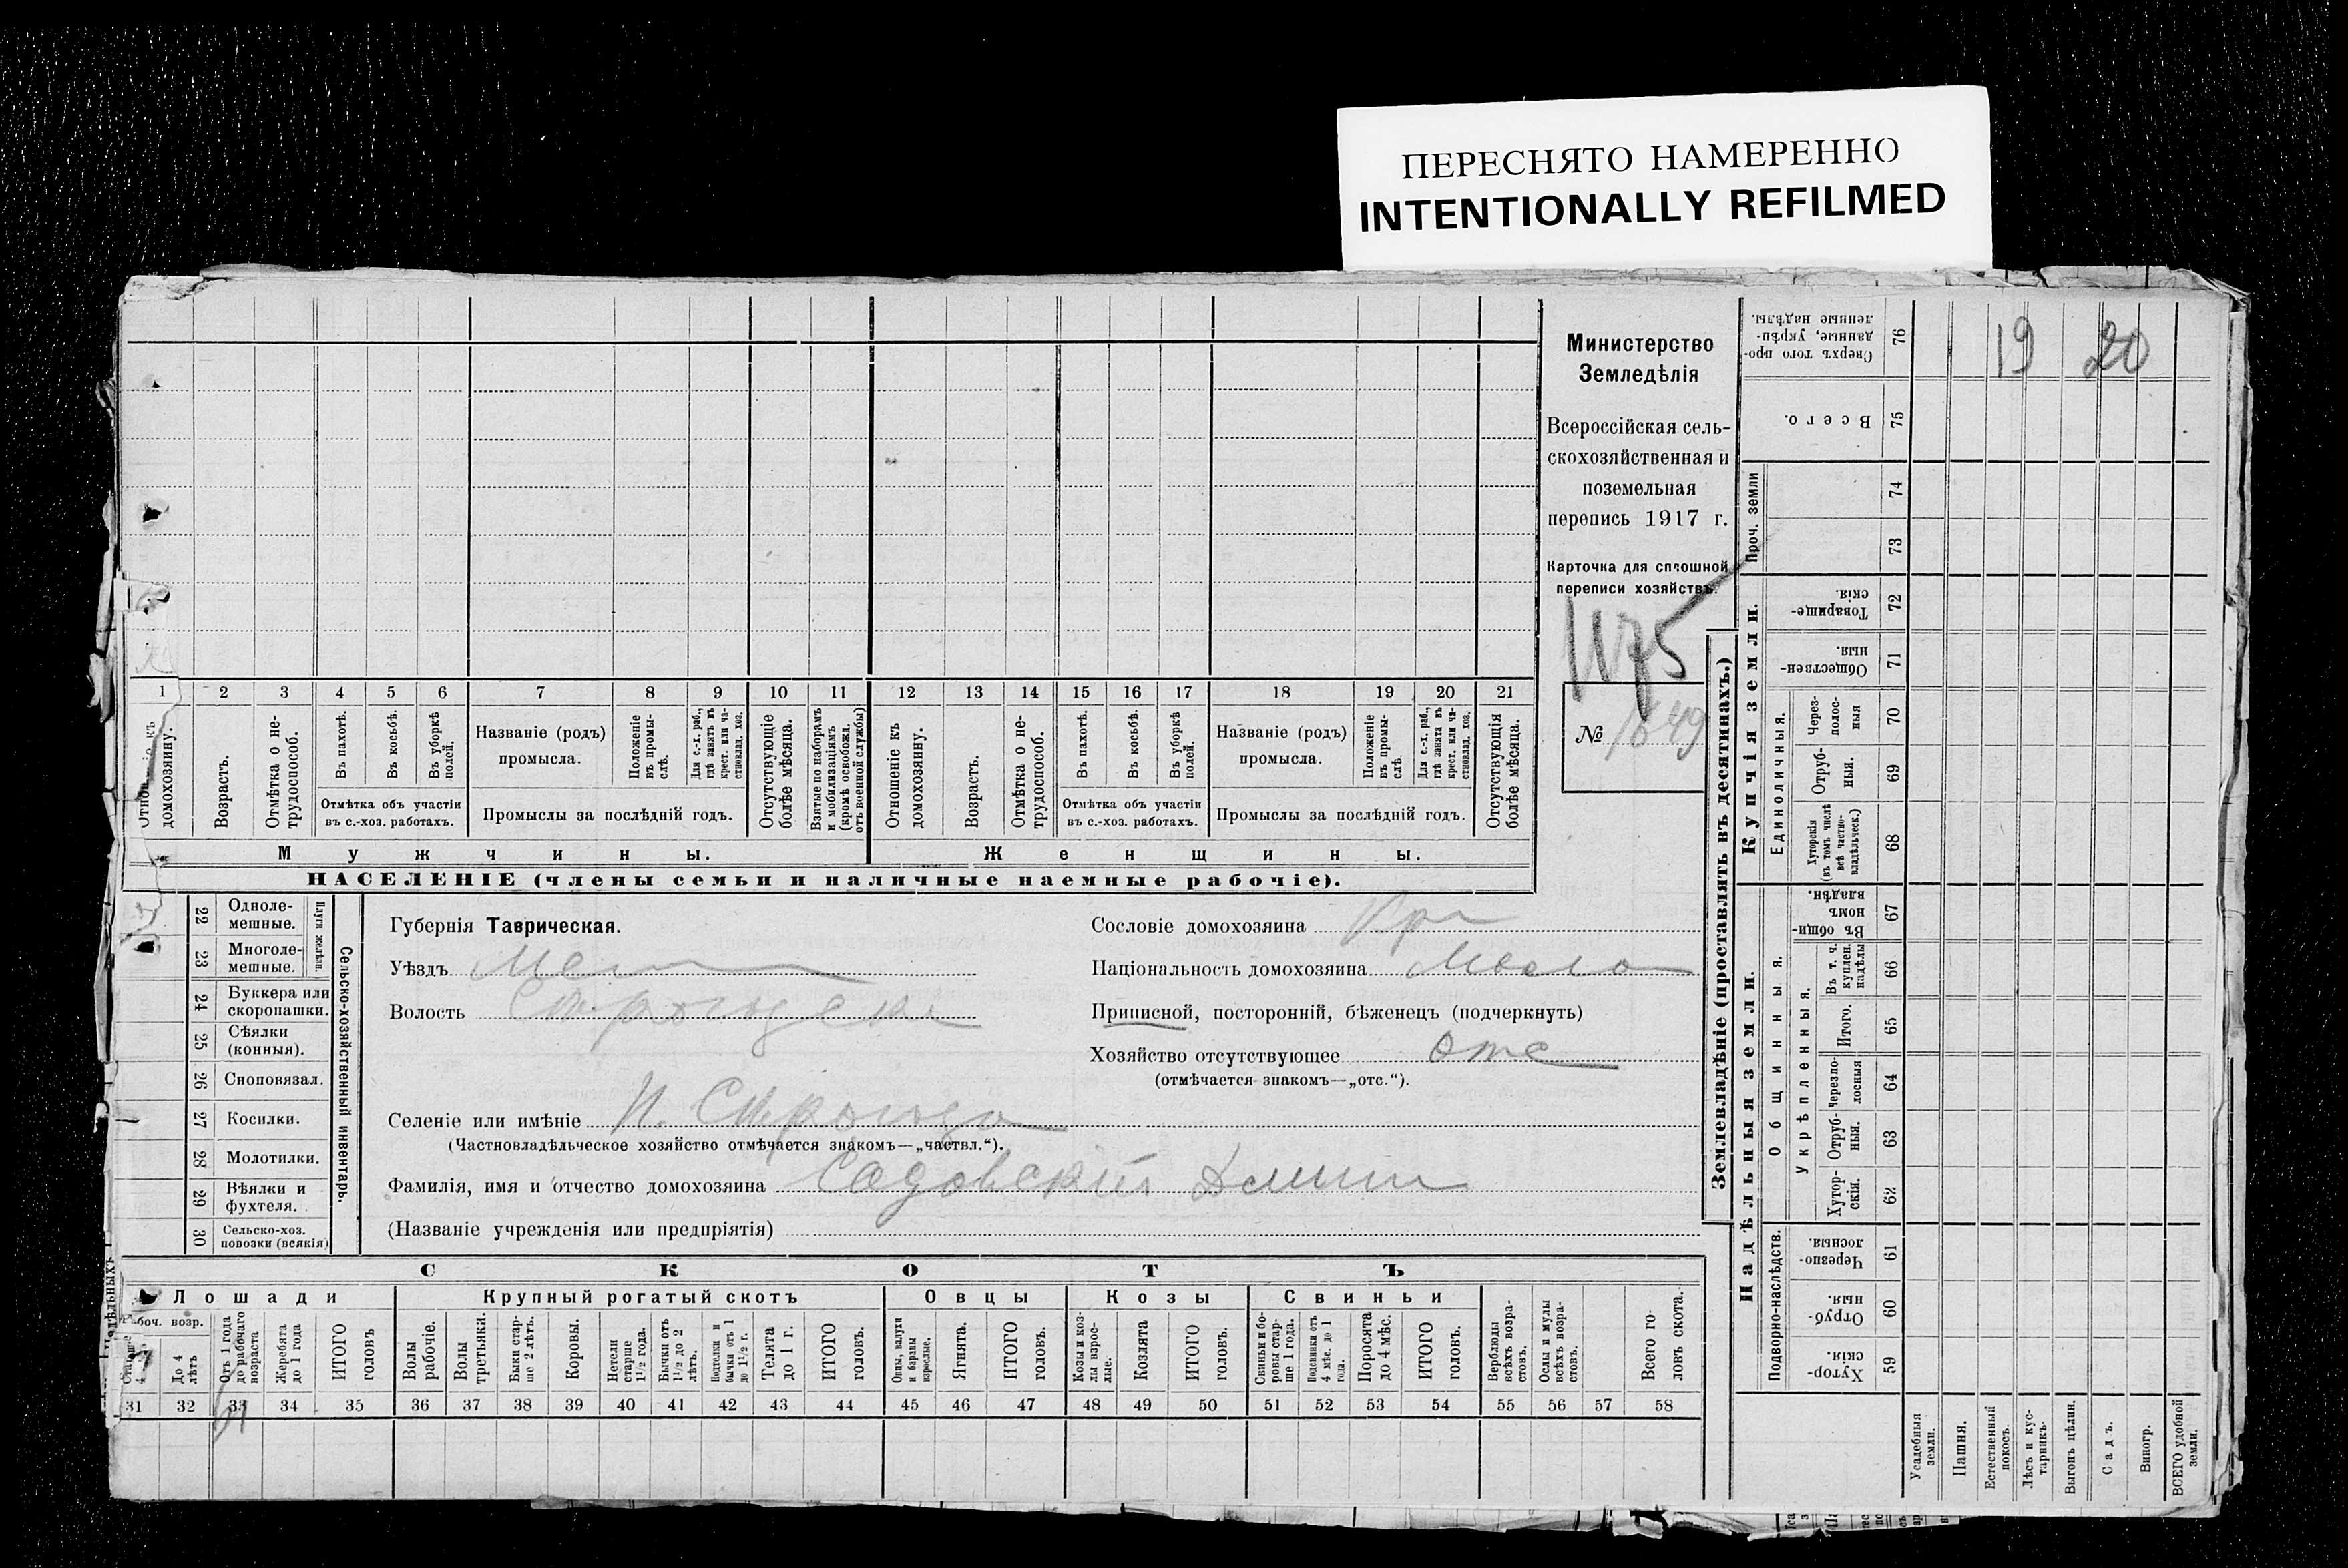 ПЕРЕСНЯТО НАМЕРЕННО
INTENTIONALLY REFILMED
Министерство
Земледѣлія
Всероссійская сель-
скохозяйственная и
поземельная
перепись 1917 г.
Карточка для сплошной
переписи хозяйствъ.
1175
№ 1649
1 2 3 4 5 6 7 8 9 10 11 12 13 14 15 16 17 18 19 20 21
Отношеніе къ домохозяину.
Возрастъ.
Отмѣтка о не-трудоспособ.
Въ пахотѣ.
Въ косьбѣ.
Въ уборкѣ полей.
Отмѣтка объ участіи
въ с.-хоз. работахъ.
Названіе (родъ)
промысла.
Положеніе въ промы-слѣ.
Для с.-х. раб., гдѣ занятъ въ крест. или ча-стновлад. хоз.
Промыслы за послѣдній годъ.
Отсутствующіе болѣе мѣсяца.
Взятые по наборамъ и мобилизаціямъ (кромѣ освобожд. отъ военной службы)
Отношеніе къ домохозяину.
Возрастъ.
Отмѣтка о не-трудоспособ.
Въ пахотѣ.
Въ косьбѣ.
Въ уборкѣ полей.
Отмѣтка объ участіи
въ с.-хоз. работахъ.
Названіе (родъ)
промысла.
Положеніе въ промы-слѣ.
Для с.-х. раб., гдѣ занята въ крест. или ча-стновлад. хоз.
Промыслы за послѣдній годъ.
Отсутствующія болѣе мѣсяца.
Мужчины. Женщины.
НАСЕЛЕНІЕ (члены семьи и наличные наемные рабочіе).
22 Одноле-мешные.
23 Многоле-мешные.
Плуги желѣзн.
24 Буккера или скоропашки.
25 Сѣялки (конныя).
26 Сноповязал.
27 Косилки.
28 Молотилки.
29 Вѣялки и фухтеля.
30 Сельско-хоз. повозки (всякія)
Сельско-хозяйственный инвентарь.
Губернія Таврическая.
Уѣздъ Мел
Волость
Селеніе или имѣніе
(Частновладѣльческое хозяйство отмѣчается знакомъ—„частвл.“).
Фамилія, имя и отчество домохозяина Садовскій
(Названіе учрежденія или предпріятія)
Сословіе домохозяина Кр
Національность домохозяина Мало
Приписной, посторонній, бѣженецъ (подчеркнуть)
Хозяйство отсутствующее отс
(отмѣчается знакомъ—„отс.“).
СКОТЪ
Лошади Крупный рогатый скотъ Овцы Козы Свиньи
Рабоч. возр.
До 4 лѣтъ
Отъ 1 года до рабочаго возраста
Жеребята до 1 года
ИТОГО головъ
Волы рабочіе.
Волы третьяки.
Быки стар-ше 2 лѣтъ.
Коровы.
Нетели старше 1½ года.
Бычки отъ 1½ до 2 лѣтъ.
Нетелки и бычки отъ 1 до 1½ г.
Телята до 1 г.
ИТОГО головъ.
Овцы, валухи и бараны взрослые.
Ягнята.
ИТОГО головъ.
Козы и коз-лы взрос-лые.
Козлята
ИТОГО головъ.
Свиньи и бо-ровы стар-ше 1 года.
Подсвинки отъ 4 мѣс. до 1 года.
Поросята до 4 мѣс.
ИТОГО головъ.
Верблюды всѣхъ возра-стовъ.
Ослы и мулы всѣхъ возра-стовъ.
Всего го-ловъ скота.
31 32 33 34 35 36 37 38 39 40 41 42 43 44 45 46 47 48 49 50 51 52 53 54 55 56 57 58
Землевладѣніе (проставлять въ десятинахъ.)
Купчія земли.
Надѣльныя земли.
Сверхъ того про-данные, укрѣп-ленные надѣлы. 76
19 20
Всего. 75
Проч. земли 74
73
Товарище-скія. 72
Обществен-ныя. 71
Единоличныя.
Через-полос-ныя 70
Отруб-ныя. 69
Хуторскія (въ томъ числѣ всѣ частно-владѣльческ.) 68
Общинныя.
Въ общин-номъ владѣн. 67
Укрѣпленныя.
Въ т. ч. куплен. надѣлы 66
Итого. 65
Черезпо-лосныя 64
Отруб-ныя. 63
Хутор-скія. 62
Подворно-наслѣдств.
Черезпо-лосныя. 61
Отруб-ныя. 60
Хутор-скія. 59
Усадебныя земли.
Пашня.
Естественный покосъ.
Лѣсъ и кус-тарникъ.
Выгонъ цѣлин.
Садъ.
Виногр.
ВСЕГО удобной земли.